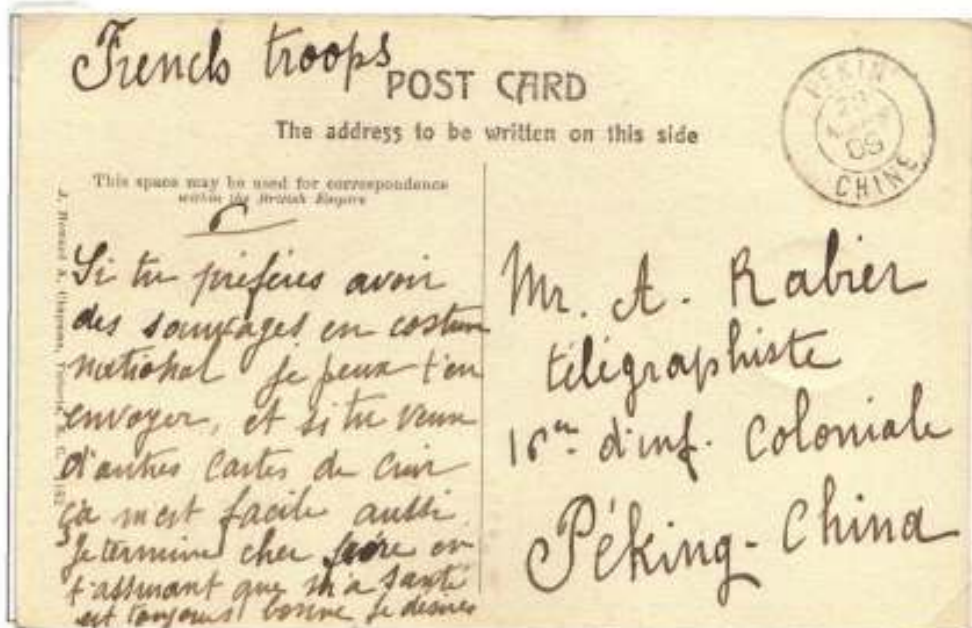 French troops
POST CARD
The address to be written on this side
PEKIN
09
CHINE
This space may be used for correspondence
within the British Empire
Si tu préfères avoir
des sauvages en costum
national je peux t'en
envoyer, et si tu veux
d'autres cartes de cuir
ça m'est facile aussi.
Je termine cher frère en
t'assurant que m'a santé
est toujours bonne je desires
Mr. A. Rabier
télégraphiste
16em d'inf. Coloniale
Péking - China